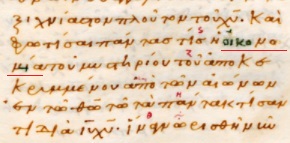 ξιχνίαστον πλοῦτον τοῦ χυ. Καὶ
φωτίσαι πάντας τίς ἡ οἰκονο
μία τοῦ μυστηρίου τοῦ ἀποκε
κρυμμένου ἀπὸ τῶν αἰώνων
ἐν τῷ θῷ τῷ τὰ πάντα κτίσαν
τι διὰ ιυ χυ. ἵνα γνωρισθῇ νῦν